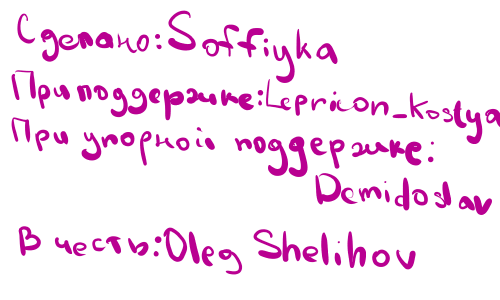 Сделано: Soffiyka
При поддержке: Lepricon_Kostya
При упорной поддержке:
Demidoslav
В честь: Oleg Shelihov